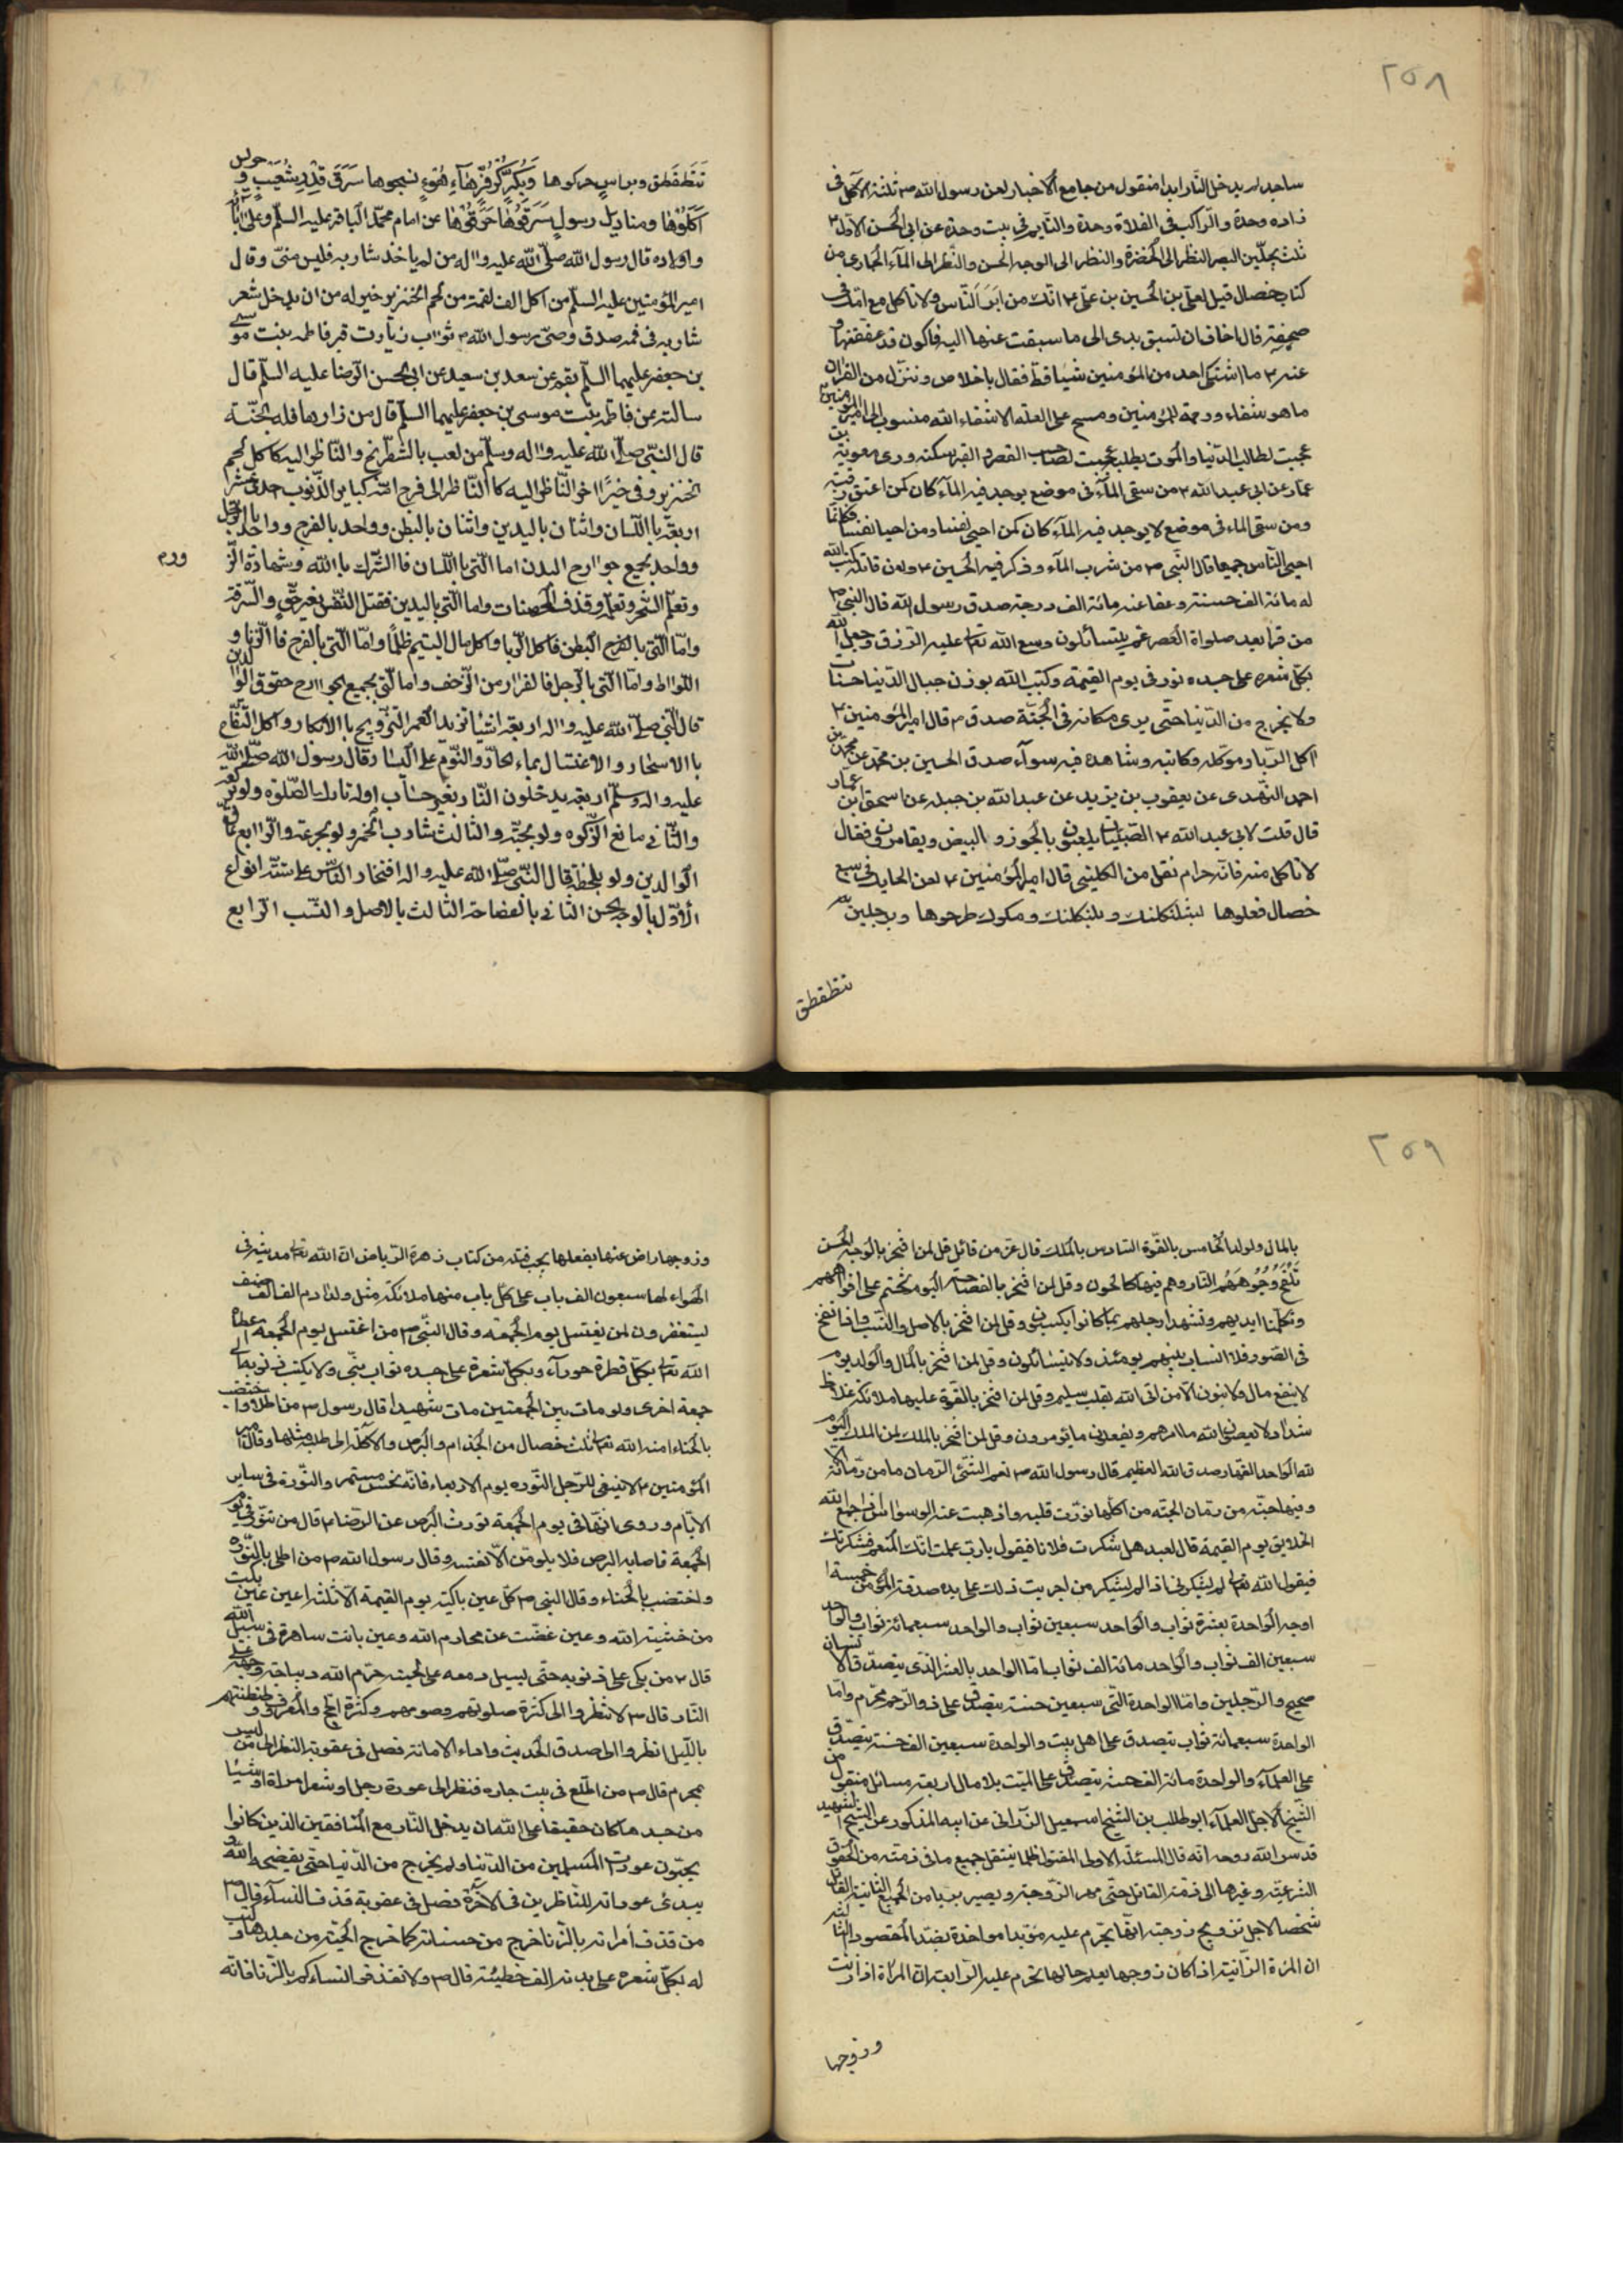 ٢٥٨
ساجد لم يدخل النار ابدا منقول من جامع الاخبار لعن رسول الله ص ثلثة الآكل فى
زاده وحدة والراكب فى الفلاة وحدة والنايم فى بيت وحدة عن ابى الحسن الاول ع
ثلث يجلين البصر النظر الى الخضرة والنظر الى الوجه الحسن والنظر الى الماء الجارى من
كتاب خصال قيل لعلى بن الحسين بن على ع انك من ابر الناس ولا تأكل مع امك فى
صحفة قال اخاف ان تسبق يدى الى ما سبقت عنها اليه فاكون قد عققتها و
عنه ع ما اشتكى احد من المؤمنين شيئا قط فقال باخلاص وننزل من القرآن
ما هو شفاء ورحمة للمؤمنين ومسح على العلة الا شفاء الله منسوب الى امير المؤمنين
عجبت لطالب الدنيا والموت يطلبه عجبت لصاحب القصر والقبر سكنه وروى معوية بن
عمار عن ابى عبد الله ع من سقى الماء فى موضع يوجد فيه الماء كان كمن اعتق رقبة
ومن سقى الماء فى موضع لا يوجد فيه الماء كان كمن احيى نفسا ومن احيا نفسا فكانما
احيى الناس جميعا قال النبى ص من شرب الماء وذكر فيه الحسين ع ولعن قاتله كتب الله
له مائة الف حسنة وعفا عنه مائة الف درجة صدق رسول الله قال النبى ص
من قرا بعد صلواة العصر عم يتسائلون وسع الله تعا عليه الرزق وجعل الله
بكل شعره على جسده نور فى يوم القيمة وكتب الله بوزن جبال الدنيا حسنات
ولا يخرج من الدنيا حتى يرى مكانه فى الجنة صدق ص قال امير المؤمنين ع
آكل الربا وموكله وكاتبه وشاهده فيه سوآء صدق الحسين بن محمد عن محمد بن
احمد النهدى عن يعقوب بن يزيد عن عبد الله بن جبله عن اسحق ابن عمار
قال قلت لابى عبد الله ع الصبيان يلعبون بالجوز و البيض ويقامرون فقال
لا تاكل منه فانه حرام نقل من الكلينى قال امير المؤمنين ع لعن الحايك فى سبع
خصال فعلوها وطرحوها وبرجلين
تتظقطق
تتظقطق وبراس حركوها
اكلوها ومناديل رسول سرقوها حرقوها عن امام محمد الباقر عليه السلم وعلى آبائه
واولاده قال رسول الله صلى الله عليه واله من لم ياخذ شاربه فليس منى وقال
امير المؤمنين عليه السلم من اكل الف لقمة من لحم الخنزير خير له من ان يدخل شعر
شاربه فى فمه صدق وصى رسول الله ص ثواب زيارت قبر فاطمه بنت موسى
بن جعفر عليهما السلم بقم عن سعد بن سعيد عن ابى الحسن الرضا عليه السلم قال
سالته عن فاطمه بنت موسى بن جعفر عليهما السلم قال من زارها فله الجنة
قال النبى صلى الله عليه واله وسلم من لعب بالشطرنج والناظر اليه كاكل لحم
الخنزير وفى خبر اخر الناظر اليه كا الناظر الى فرج امه كباير الذنوب احدى عشر
اربعة با اللسان واثنان باليدين واثنان بالبطن وواحد بالفرج وواحد بالرجل
وواحد بجميع جوارح البدن اما التى با اللسان فا الشرك با الله وشهادة الزور
ورم
وتعلم السحر وتعلم وقذف المحصنات واما التى باليدين فقتل النفس بغير حق والسرقة
واما التى بالفرج البطن فاكل الربا واكل مال اليتيم ظلما واما التى بالفرج فا الزنا و
اللواط واما التى بالرجل فالفرار من الزحف واما التى بجميع الجوارح حقوق الوالدين
قال النبى صلى الله عليه واله اربعة اشيا تزيد العمر التزويج با الابكار واكل التفاح
با الاسحار والاغتسال بماء الحار والنوم على اليسار وقال رسول الله صلى الله
عليه واله وسلم اربعه يدخلون النار بغير حساب اوله تارك الصلوه ولو ركعة
والثانى مانع الزكوه ولو بحبة والثالث شارب الخمر ولو بجرعة والرابع عاق
الوالدين ولو بلحظة قال النبى صلى الله عليه واله افتخار الناس على ستة انواع
الاول بالوجه الحسن الثانى بالفصاحة الثالث بالاصل والنسب الرابع
٢٥٩
بالمال ولولد الخامس بالقوة السادس بالملك قال عز من قائل قل لمن افتخر بالوجه الحسن
تلفح وجوههم النار وهم فيها كالحون وقل لمن افتخر بالفصاحة اليوم نختم على افواههم
وتكلمنا ايديهم وتشهد ارجلهم بما كانوا يكسبون وقل لمن افتخر بالاصل والنسب واذا نفخ
فى الصور فلا انساب بينهم يومئذ ولا يتسائلون وقل لمن افتخر بالمال والولد يوم
لا ينفع مال ولا بنون الا من اتى الله بقلب سليم وقل لمن افتخر بالقوة عليها ملائكة غلاظ
شداد لا يعصون الله ما امرهم ويفعلون ما يؤمرون وقل لمن افتخر بالملك لمن الملك اليوم
لله الواحد القهار صدق الله العظيم قال رسول الله ص نعم الشئ الرمان ما من رمانة الا
وفيها حبة من رمان الجنة من اكلها نورت قلبه واذهبت عنه الوسواس اذا جمع الله
الخلايق يوم القيمة قال لعبد هل شكرت فلانا فيقول يا رب علمت انك المنعم فشكرتك
فيقول الله تعا لم تشكرنى اذا لم تشكر من اجريت ذلك على يده صدقة المؤمن خمسة
اوجه الواحدة بعشرة ثواب والواحد سبعين ثواب والواحد سبعمائة ثواب والواحد
سبعين الف ثواب والواحد مائة الف ثواب اما الواحد بالعشر الذى يتصدق
صحيح والرجلين واما الواحدة التى سبعين حسنة يتصدق على ذو الرحم محرم واما
الواحدة سبعمائة ثواب يتصدق على اهل بيت والواحدة سبعين الف حسنة يتصدق
على العلماء والواحدة مائة الف حسنة يتصدق على الميت بلا مال اربعة مسائل منقول من
الشيخ الاجل العلماء ابو طالب بن الشيخ اسمعيل عن ابيه المذكور عن الشيخ الشهيد
قدس الله روحه انه قال المسئلة الاولى المقتول ظلما ينتقل جميع ما فى ذمته من الحقوق
الشرعية وغيرها الى ذمة القاتل حتى مهر الزوجة ويصير بريا من الجميع الثانية القاتل
شخصا لاجل تزويج زوجته انها تحرم عليه مؤبدا مواخذة بضد المقصود الثالثة
ان المرة الزانية اذا كان زوجها يعلم حالها تحرم عليه الرابعة ان المرأة اذا زنت
وزوجها
وزوجها راض عنها بفعلها يجب قتله من كتاب زهرة الرياض ان الله تعا مدينة فى
الهواء لها سبعون الف باب على كل باب منها ملائكة مثل ولد ادم الف الف ضعف
ليستغفرون لمن يغتسل يوم الجمعة وقال النبى ص من اغتسل يوم الجمعة اعطاه
الله تعا بكل قطرة حورآء وبكل شعرة على جسده ثواب نبى ولا يكتب ذنوبه الى
جمعة اخرى ولو مات بين الجمعتين مات شهيدا قال رسول ص من اطلا واختضب
بالحناء امنه الله تعا ثلث خصال من الجذام والبرص والاكلة الى طلية مثلها وقال امير
المؤمنين ع لا ينبغى للرجل النوره يوم الاربعاء فانه نحس مستمر والنورة فى ساير
الايام وروى انها فى يوم الجمعة تورث البرص عن الرضا ع قال من تنور فى يوم
الجمعة فاصابه البرص فلا يلومن الا نفسه وقال رسول الله ص من اطلى بالنورة
واختضب بالحناء وقال النبى ص كل عين باكية يوم القيمة الا ثلثة اعين عين بكت
من خشية الله وعين غضت عن محارم الله وعين باتت ساهرة فى سبيل الله
قال ع من بكى على ذنوبه حتى يسيل دمعه على لحيته حرم الله ديباجة وجهه على
النار قال ص لا تنظروا الى كثرة صلوتهم وصومهم وكثرة الحج والمعروف وطنطنتهم
بالليل انظروا الى صدق الحديث واداء الامانة فصل فى عقوبة النظر الى من ليس
بمحرم قال ص من اطلع فى بيت جاره فنظر الى عورة رجل او شعر امراة او شيئا
من جسدها كان حقيقا على الله ان يدخل النار مع المنافقين الذين كانوا
يحبون عورت المسلمين من الدنيا ولم يخرج من الدنيا حتى يفضحه الله و
يبدئ عوراته للناظرين فى الآخرة فصل فى عقوبة قذف النساء قال ص
من قذف امراته بالزنا خرج من حسناته كما تخرج الحية من جلدها وكتب
له بكل شعره على بدنه الف خطيئة قال ص ولا تقذفوا نساءكم بالزنا فانه